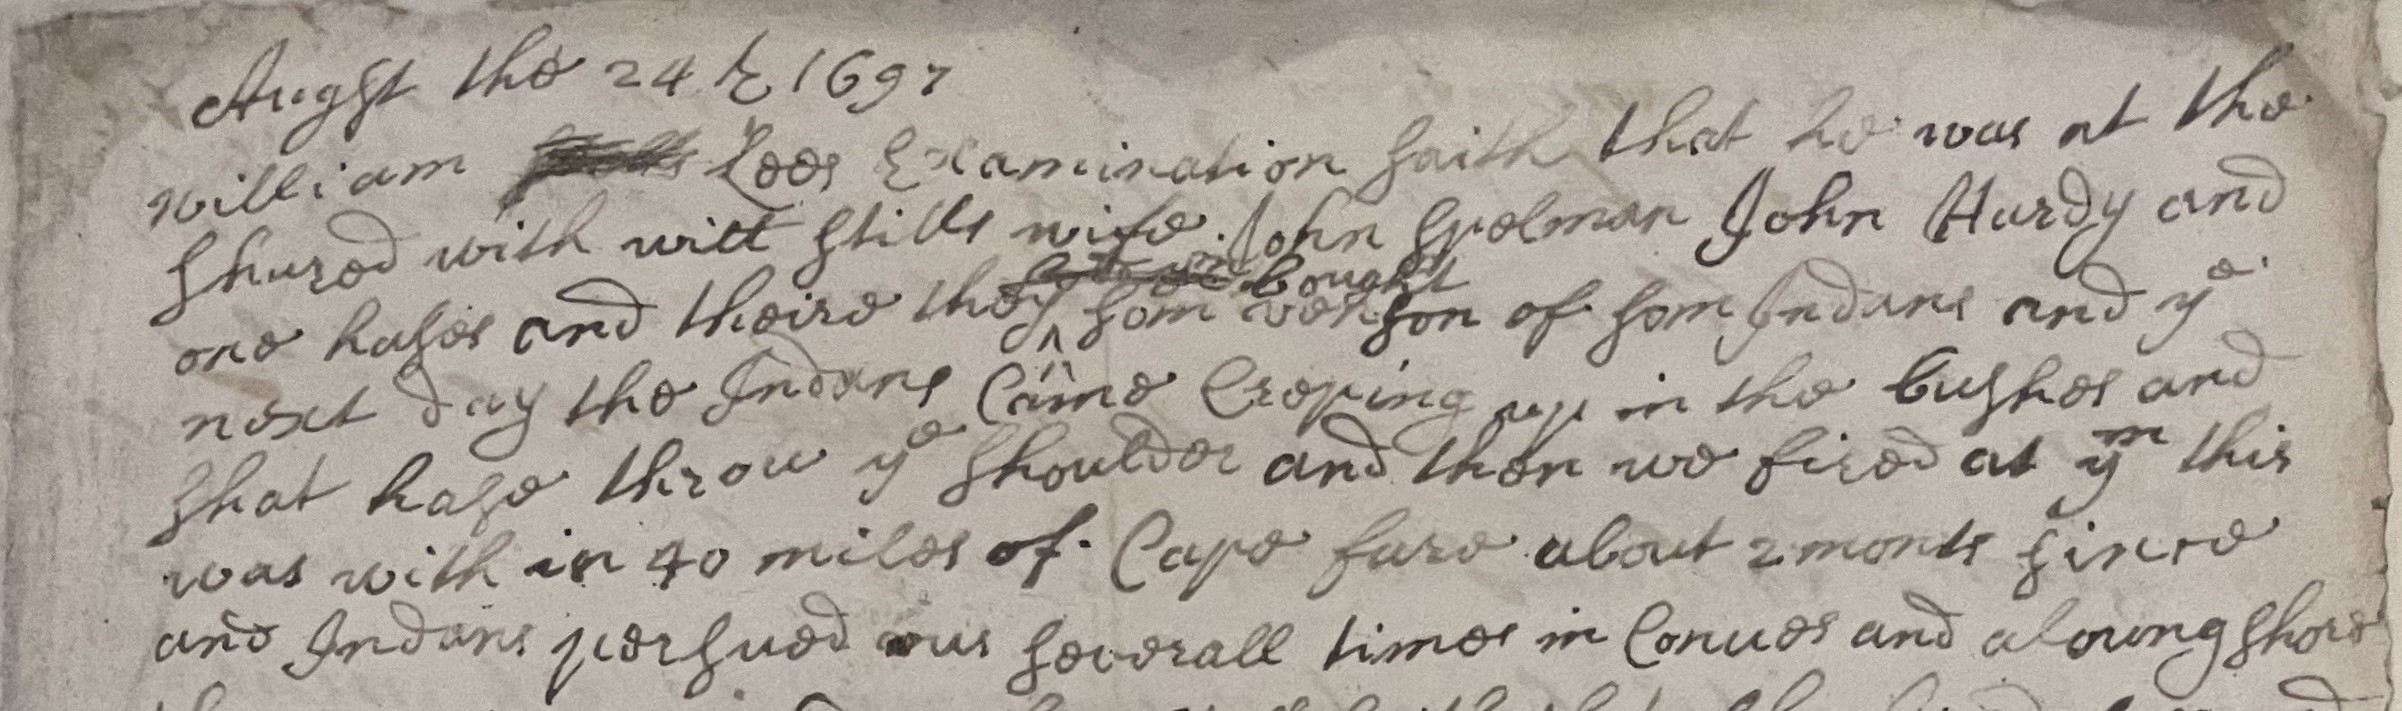 Augst the 24th 1697
William Lees Examination saith that he was at the
shured with will stills wife John Spelman John Hardy and
one hases and theire they bought som venson of som Indans and ye
next day the Indans Came Creping up in the bushes and
shat hase throu ye shoulder and then we fired at ym this
was with in 40 miles of Cape fare about 2 monts since
and Indans persued us severall times in Conues and aloung shore